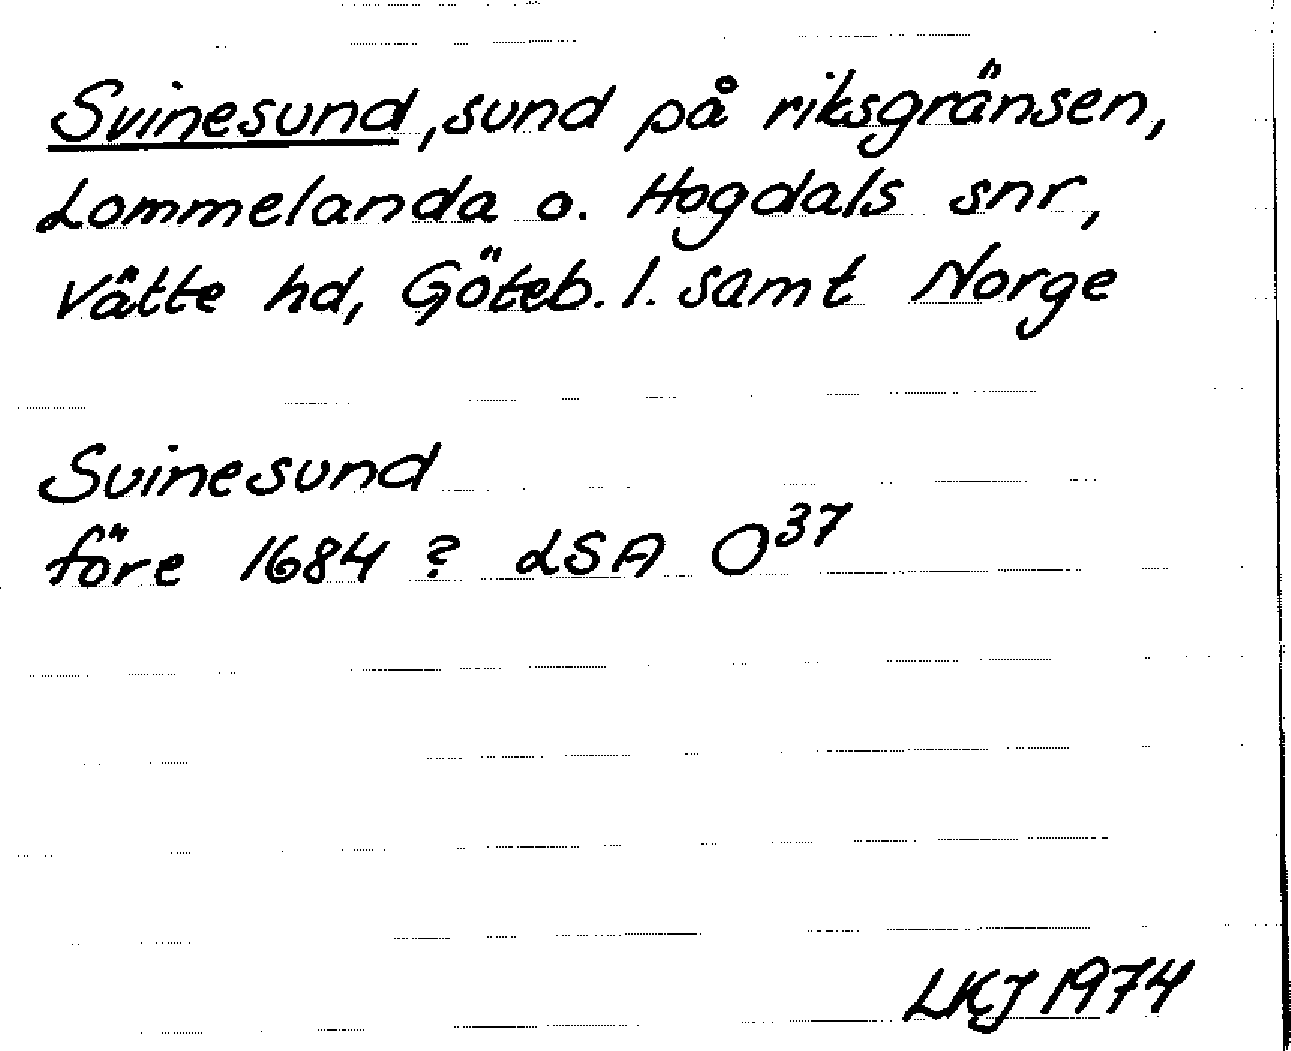 Svinesund, sund på riksgränsen,
Lommelanda o. Hogdals snr,
Vätte hd, Göteb. l. samt Norge
Svinesund
före 1684 ? LSA O³⁷
LKJ 1974